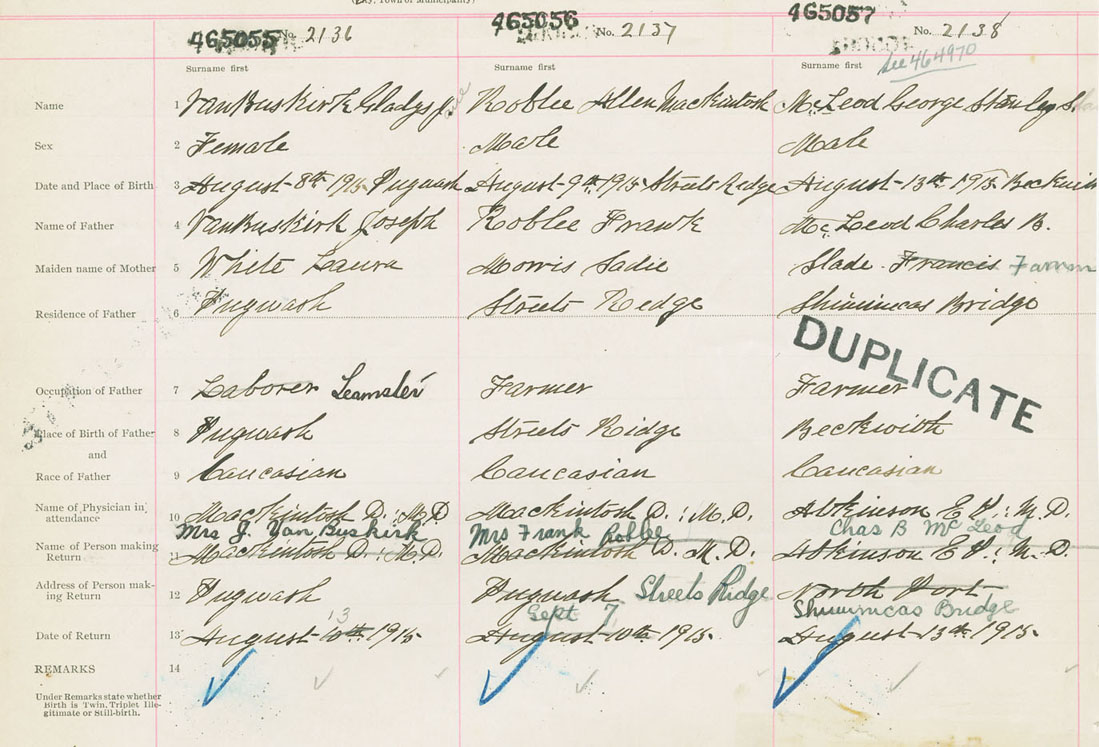 (City, Town or Municipality)
465055 No. 2136 465056 No. 2137 465057 No. 2138
See 464970
Surname first Surname first Surname first
Name 1 VanBuskirk Gladys Roblee Allen Mackintosh McLeod George Stanley
Sex 2 Female Male Male
Date and Place of Birth 3 August-8th 1915 Pugwash August-9th 1915 Streets Redge August-13th 1915 Beckwith
Name of Father 4 VanBuskirk Joseph Roblee Frank McLeod Charles B.
Maiden name of Mother 5 White Laura Morris Sadie Slade Francis
Residence of Father 6 Pugwash Streets Redge Shinimicas Bridge
DUPLICATE
Occupation of Father 7 Laborer Teamster Farmer Farmer
Place of Birth of Father 8 Pugwash Streets Ridge Beckwith
and
Race of Father 9 Caucasian Caucasian Caucasian
Name of Physician in attendance 10 Mackintosh D. : M.D. Mackintosh D. : M.D. Atkinson E : M.D.
Mrs J. Van Buskirk Mrs Frank Roblee Chas B McLeod
Name of Person making Return 11 Mackintosh D. : M.D. Mackintosh D. M.D. Atkinson E : M.D.
Address of Person making Return 12 Pugwash Pugwash Streets Ridge North Port
13 Sept 7 Shinimicas Bridge
Date of Return 13 August-10th 1915 August-10th 1915. August-13th 1915
REMARKS 14
Under Remarks state whether
Birth is Twin, Triplet Ille-
gitimate or Still-birth.